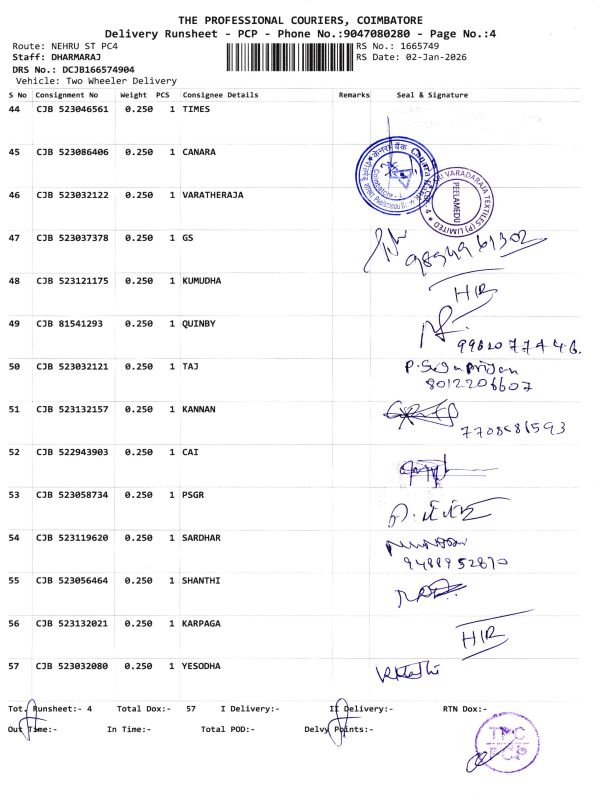 THE PROFESSIONAL COURIERS, COIMBATORE
Delivery Runsheet - PCP - Phone No.:9047080280 - Page No.:4
Route: NEHRU ST PC4
RS No.: 1665749
Staff: DHARMARAJ
RS Date: 02-Jan-2026
DRS No.: DCJB166574904
Vehicle: Two Wheeler Delivery
S No Consignment No Weight PCS Consignee Details Remarks Seal & Signature
44 CJB 523046561 0.250 1 TIMES
45 CJB 523086406 0.250 1 CANARA
46 CJB 523032122 0.250 1 VARATHERAJA
VARADARAJA TEXTILES (P) LIMITED
PEELAMEDU
47 CJB 523037378 0.250 1 GS
48 CJB 523121175 0.250 1 KUMUDHA
HIR
49 CJB 81541293 0.250 1 QUINBY
50 CJB 523032121 0.250 1 TAJ
8012206607
51 CJB 523132157 0.250 1 KANNAN
52 CJB 522943903 0.250 1 CAI
53 CJB 523058734 0.250 1 PSGR
54 CJB 523119620 0.250 1 SARDHAR
9488952870
55 CJB 523056464 0.250 1 SHANTHI
56 CJB 523132021 0.250 1 KARPAGA
HIR
57 CJB 523032080 0.250 1 YESODHA
Tot. Runsheet:- 4 Total Dox:- 57 I Delivery:- II Delivery:- RTN Dox:-
Out Time:- In Time:- Total POD:- Delvy Points:-